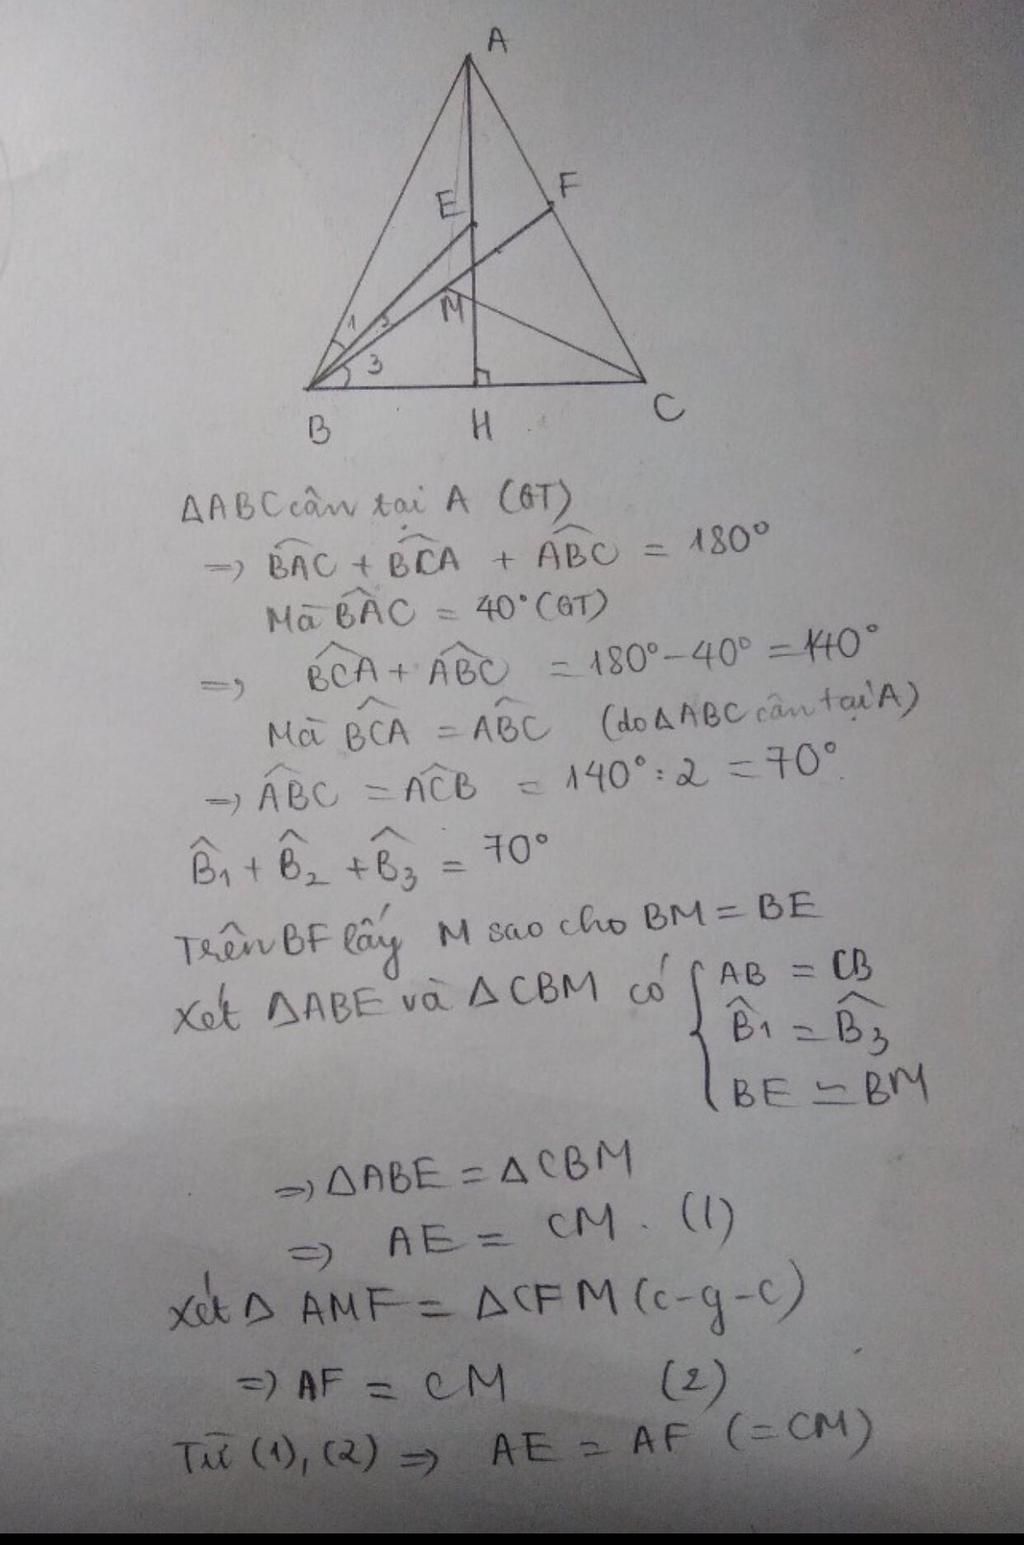 A
F
E
M
1
3
B
H
C
ΔABC cân tại A (GT)
=> \widehat{BAC} + \widehat{BCA} + \widehat{ABC} = 180°
Mà \widehat{BAC} = 40° (GT)
=> \widehat{BCA} + \widehat{ABC} = 180° - 40° = 140°
Mà \widehat{BCA} = \widehat{ABC} (do ΔABC cân tại A)
=> \widehat{ABC} = \widehat{ACB} = 140° : 2 = 70°.
\widehat{B}₁ + \widehat{B}₂ + \widehat{B}₃ = 70°
Trên BF lấy M sao cho BM = BE
Xét ΔABE và ΔCBM có { AB = CB
\widehat{B}₁ = \widehat{B}₃
BE = BM
=> ΔABE = ΔCBM
=> AE = CM. (1)
Xét Δ AMF = ΔCFM (c-g-c)
=> AF = CM (2)
Từ (1), (2) => AE = AF (= CM)